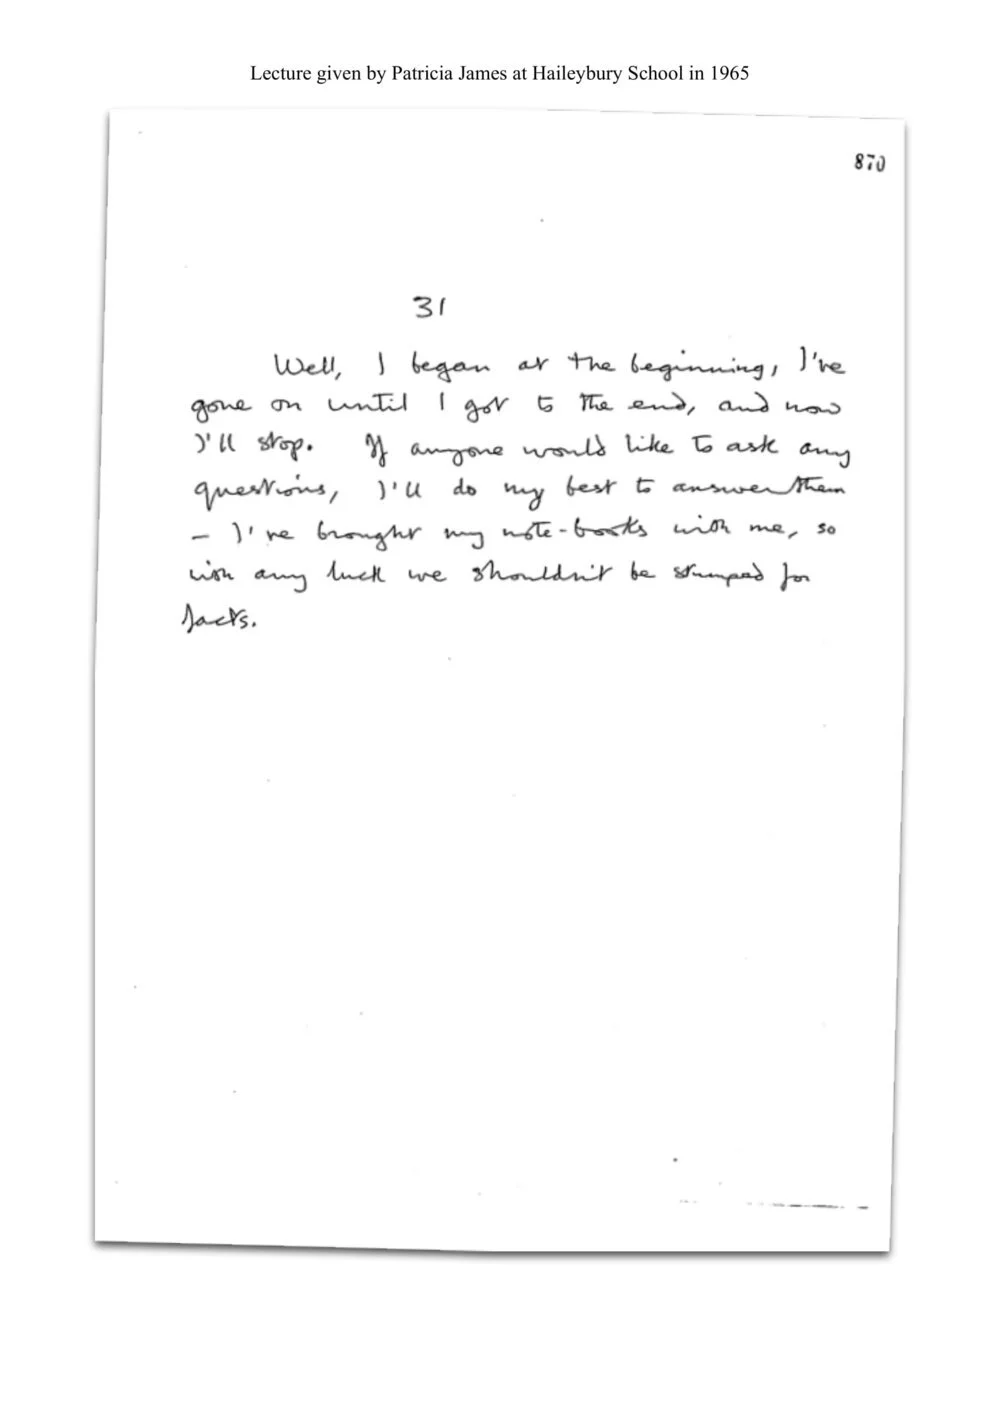 Lecture given by Patricia James at Haileybury School in 1965
870
31
Well, I began at the beginning, I've
gone on until I got to the end, and now
I'll stop. If anyone would like to ask any
questions, I'll do my best to answer them
– I've brought my note-books with me, so
with any luck we shouldn't be stumped for
facts.